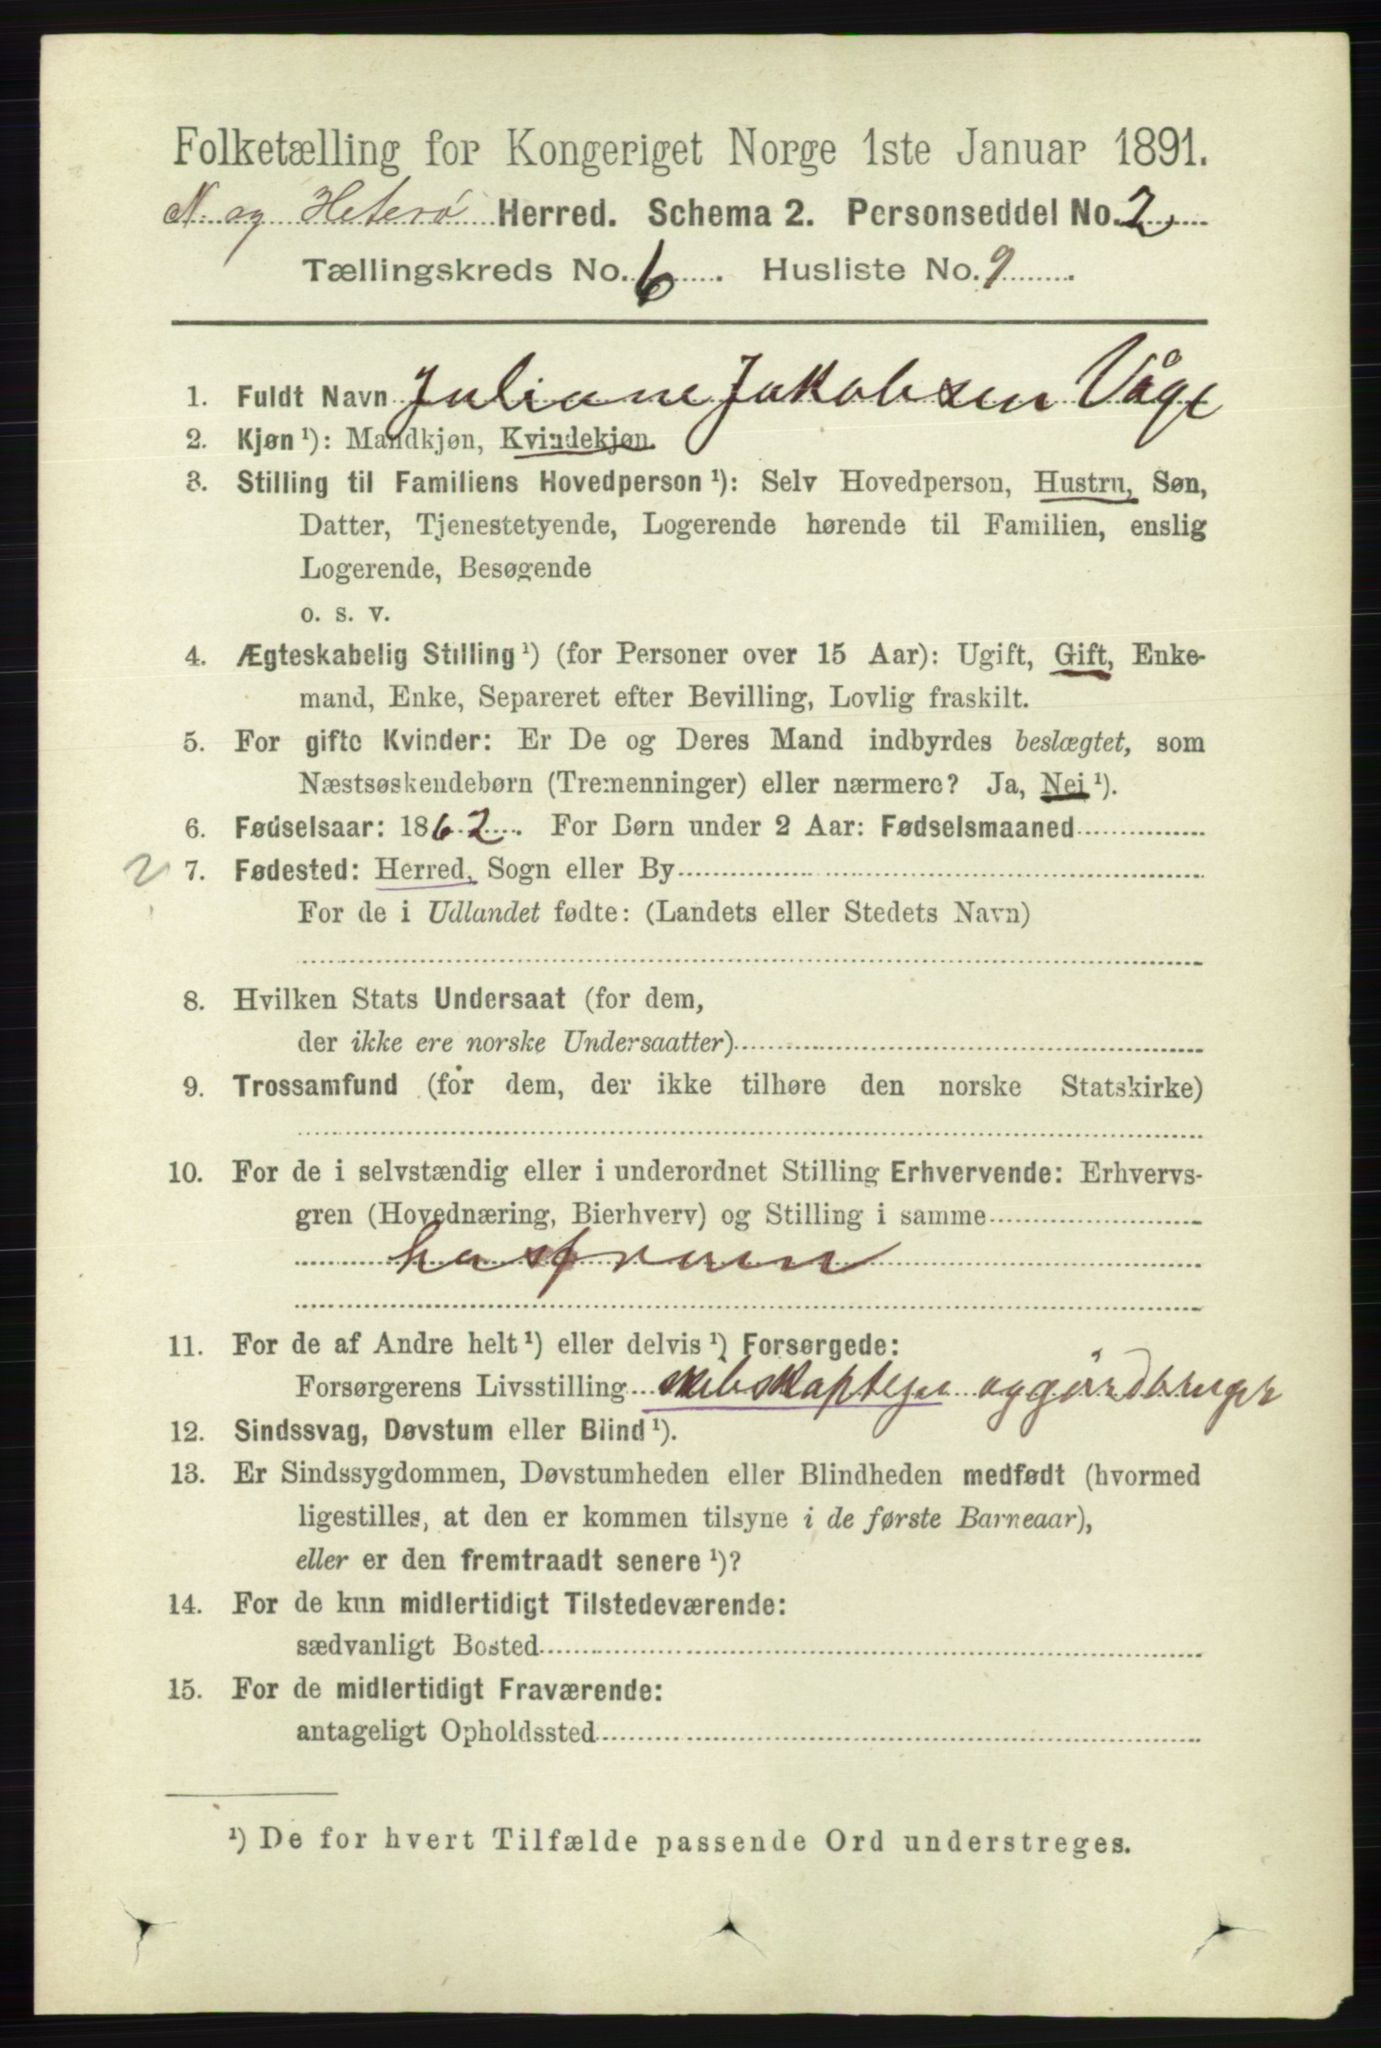 Folketælling for Kongeriget Norge 1ste Januar 1891.
N. og Heterø Herred. Schema 2. Personseddel No. 2
Tællingskreds No. 6. Husliste No. 9.
1. Fuldt Navn Juliane Jakobsen Våge
2. Kjøn ¹): Mandkjøn, Kvindekjøn.
3. Stilling til Familiens Hovedperson ¹): Selv Hovedperson, Hustru, Søn,
Datter, Tjenestetyende, Logerende hørende til Familien, enslig
Logerende, Besøgende
o. s. v.
4. Ægteskabelig Stilling ¹) (for Personer over 15 Aar): Ugift, Gift, Enke-
mand, Enke, Separeret efter Bevilling, Lovlig fraskilt.
5. For gifte Kvinder: Er De og Deres Mand indbyrdes beslægtet, som
Næstsøskendebørn (Tremenninger) eller nærmere? Ja, Nei ¹).
6. Fødselsaar: 1862. For Børn under 2 Aar: Fødselsmaaned
2 7. Fødested: Herred, Sogn eller By
For de i Udlandet fødte: (Landets eller Stedets Navn)
8. Hvilken Stats Undersaat (for dem,
der ikke ere norske Undersaatter)
9. Trossamfund (for dem, der ikke tilhøre den norske Statskirke)
10. For de i selvstændig eller i underordnet Stilling Erhvervende: Erhvervs-
gren (Hovednæring, Bierhverv) og Stilling i samme
11. For de af Andre helt ¹) eller delvis ¹) Forsørgede:
Forsørgerens Livsstilling skibskaptejn og gårdbruger
12. Sindssvag, Døvstum eller Blind ¹).
13. Er Sindssygdommen, Døvstumheden eller Blindheden medfødt (hvormed
ligestilles, at den er kommen tilsyne i de første Barneaar),
eller er den fremtraadt senere ¹)?
14. For de kun midlertidigt Tilstedeværende:
sædvanligt Bosted
15. For de midlertidigt Fraværende:
antageligt Opholdssted
¹) De for hvert Tilfælde passende Ord understreges.